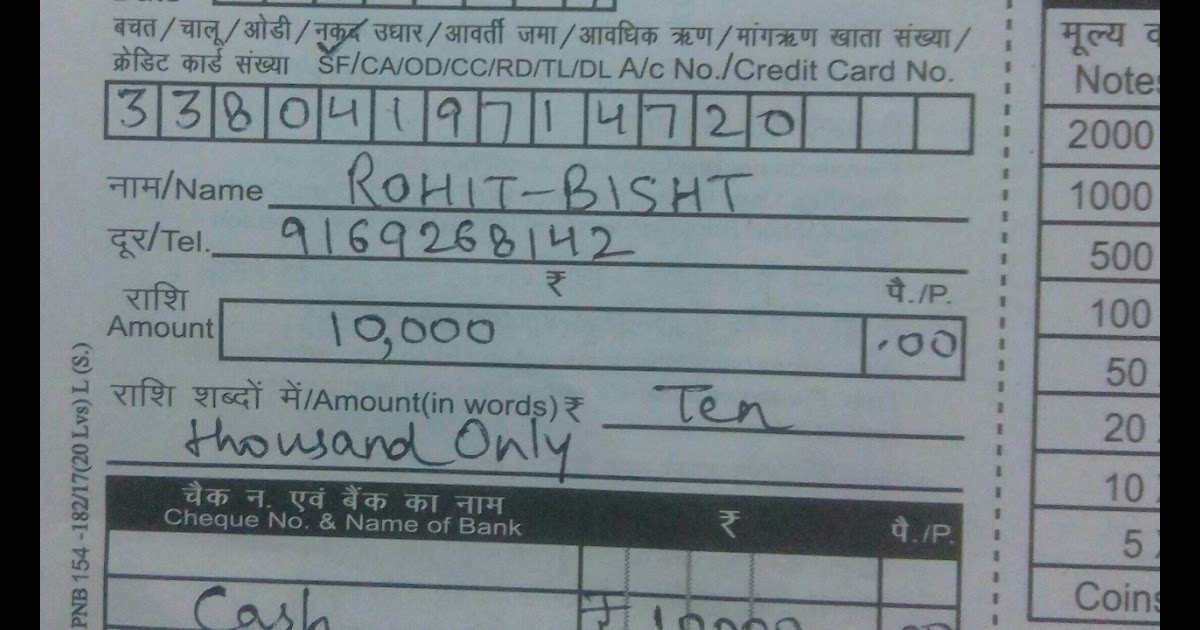 बचत/चालू/ओडी/नकद उधार/आवर्ती जमा/आवधिक ऋण/मांगऋण खाता संख्या/
क्रेडिट कार्ड संख्या SF/CA/OD/CC/RD/TL/DL A/c No./Credit Card No.
3 3 8 0 4 1 9 7 1 4 7 2 0
नाम/Name ROHIT-BISHT
दूर/Tel. 9169268142
₹ पै./P.
राशि
Amount 10,000 .00
राशि शब्दों में/Amount(in words) ₹ Ten
thousand Only
चैक न. एवं बैंक का नाम
Cheque No. & Name of Bank ₹ पै./P.
Cash ₹ 10000 00
PNB 154 -182/17(20 Lvs) L (S.)
मूल्य
Notes
2000
1000
500
100
50
20
10
5
Coins